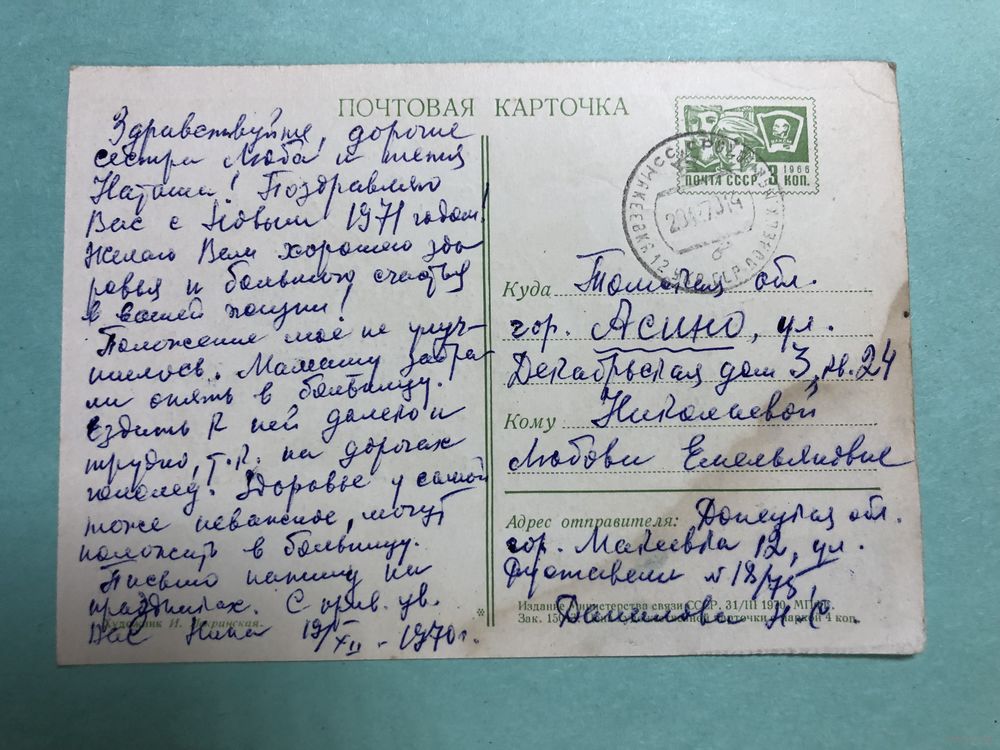 ПОЧТОВАЯ КАРТОЧКА
Здравствуйте, дорогие
сестра Люба и тетя
Наташа! Поздравляю
Вас с Новым 1971 годом!
Желаю Вам хорошего здо
ровья и большого счастья
в вашей жизни!
Положение моё не улуч-
шилось. Мамашу забра
ли опять в больницу.
Ездить к ней далеко и
трудно, т.к. на дорогах
гололед. Здоровье у самой
тоже неважное, могут
положить в больницу.
Письмо напишу на
праздниках. С прив. ув.
Вас Нина 19/XII - 1970 г.
Художник И. Искринская.
1966
ПОЧТА СССР 3 КОП.
ВЛКСМ
МАКЕЕВКА 12 УКР. ССР
Куда Томская обл.
гор. Асино, ул.
Декабрьская дом 3, кв. 24
Кому Николаевой
Любови Емельяновне
Адрес отправителя: Донецкая обл.
гор. Макеевка 12, ул.
№ 18/75
Н.К.
Издание Министерства связи СССР. 31/III 1970.
Зак. карточки с маркой 4 коп.